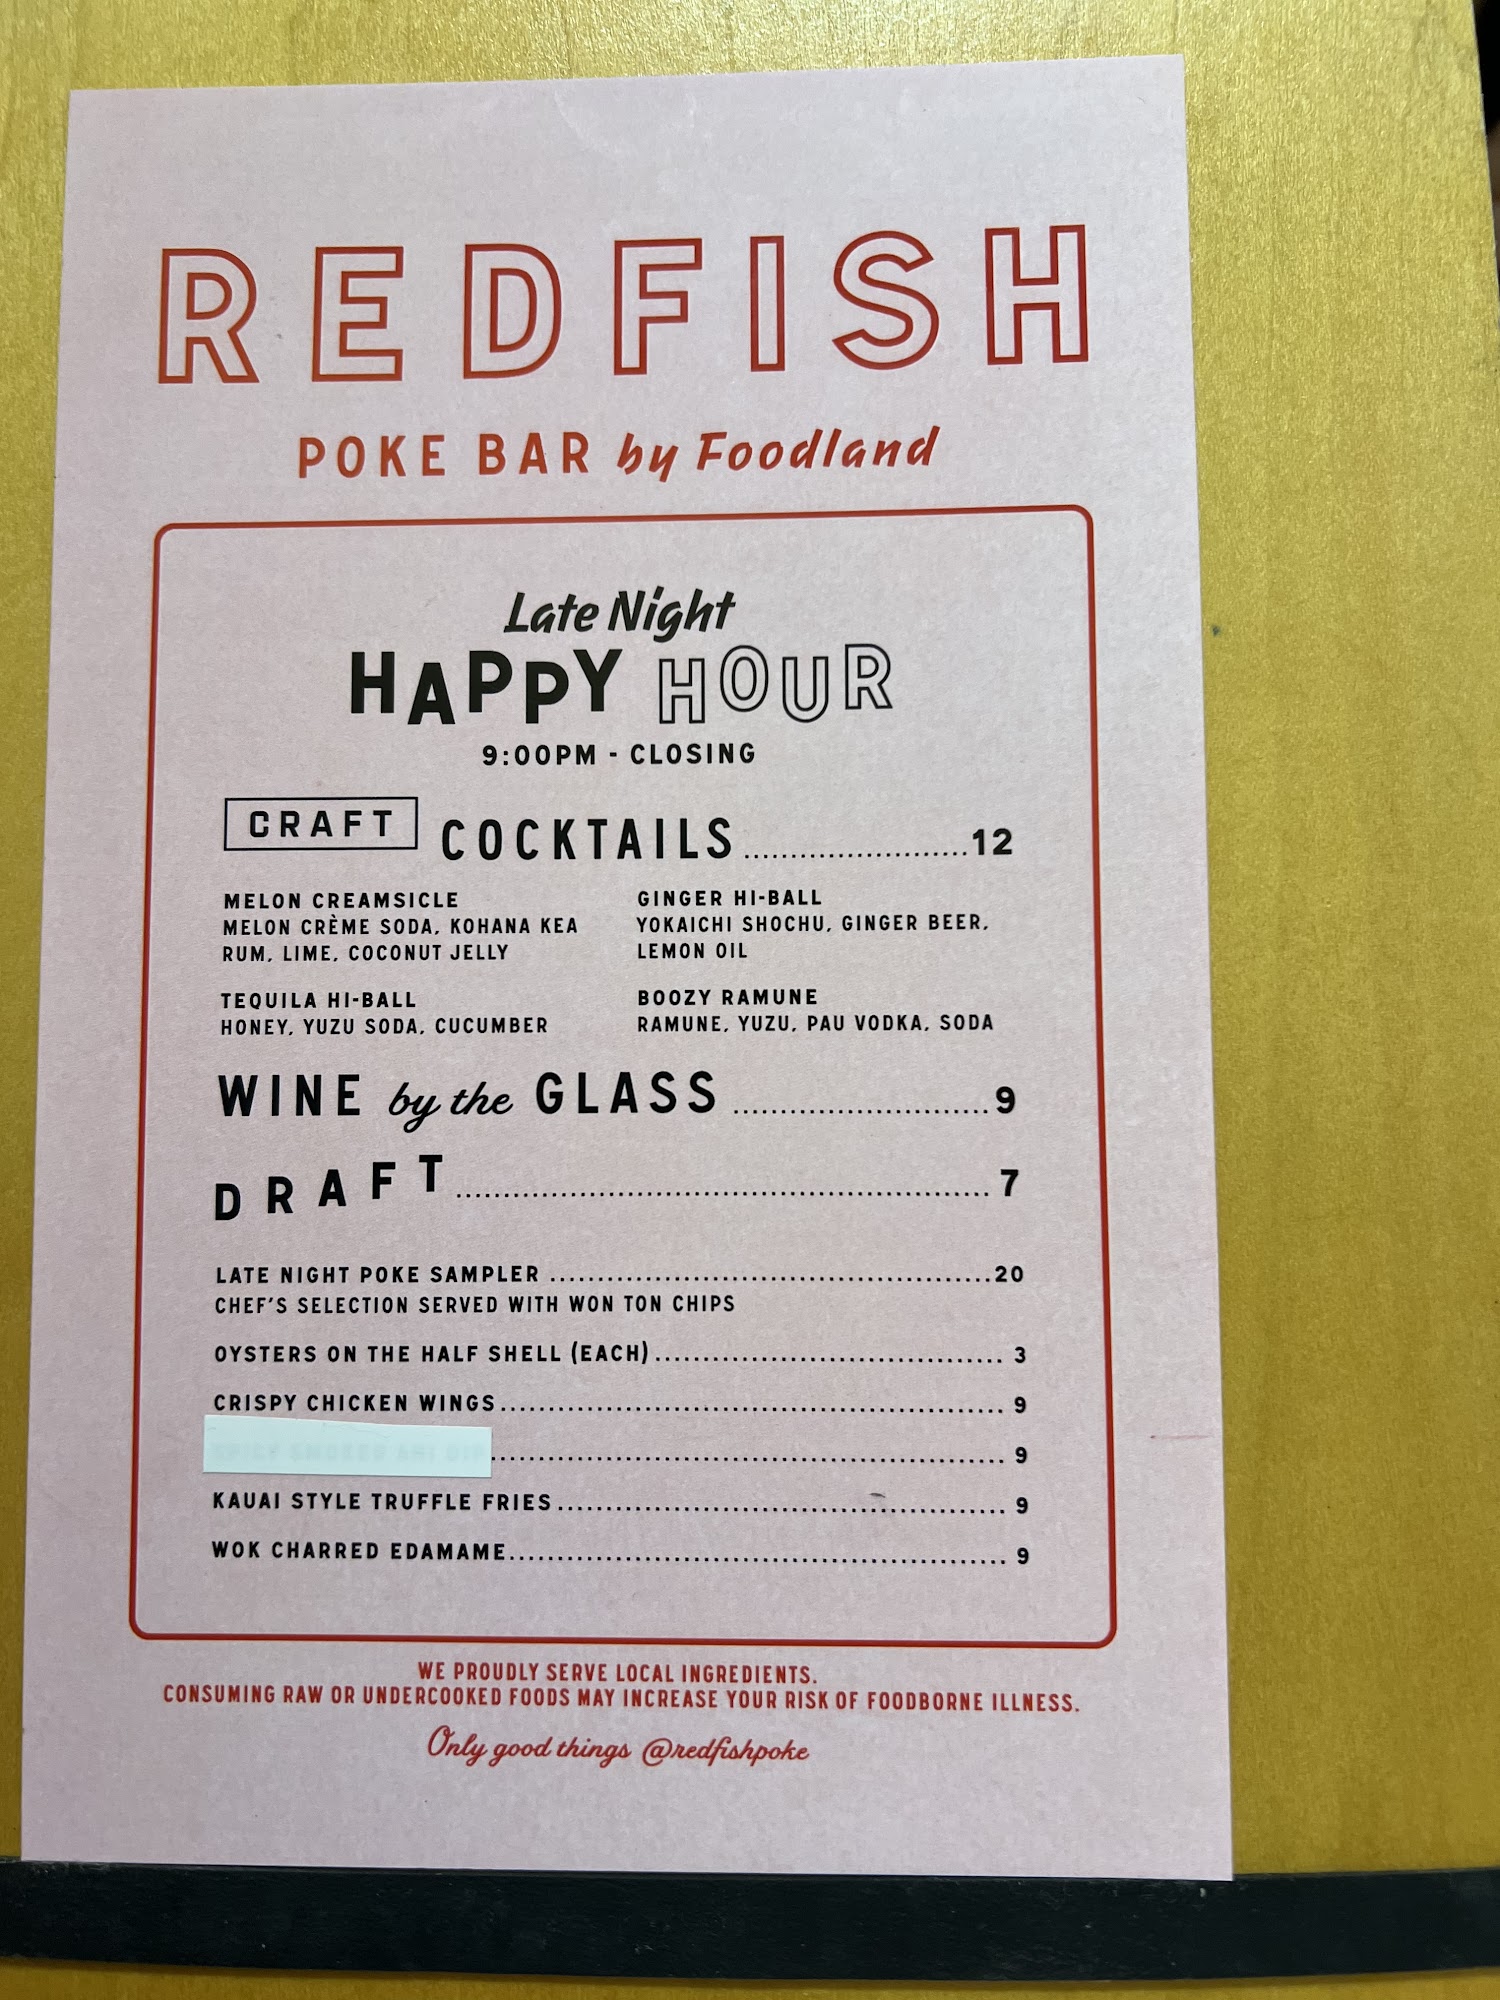 REDFISH
POKE BAR by Foodland
Late Night
HAPPY HOUR
9:00PM - CLOSING
CRAFT COCKTAILS........................12
MELON CREAMSICLE
MELON CRÈME SODA, KOHANA KEA
RUM, LIME, COCONUT JELLY
GINGER HI-BALL
YOKAICHI SHOCHU, GINGER BEER,
LEMON OIL
TEQUILA HI-BALL
HONEY, YUZU SODA, CUCUMBER
BOOZY RAMUNE
RAMUNE, YUZU, PAU VODKA, SODA
WINE by the GLASS...........................9
DRAFT.........................................................7
LATE NIGHT POKE SAMPLER...............................................20
CHEF'S SELECTION SERVED WITH WON TON CHIPS
OYSTERS ON THE HALF SHELL (EACH)..................................... 3
CRISPY CHICKEN WINGS...................................................... 9
....................................................... 9
KAUAI STYLE TRUFFLE FRIES................................................ 9
WOK CHARRED EDAMAME..................................................... 9
WE PROUDLY SERVE LOCAL INGREDIENTS.
CONSUMING RAW OR UNDERCOOKED FOODS MAY INCREASE YOUR RISK OF FOODBORNE ILLNESS.
Only good things @redfishpoke